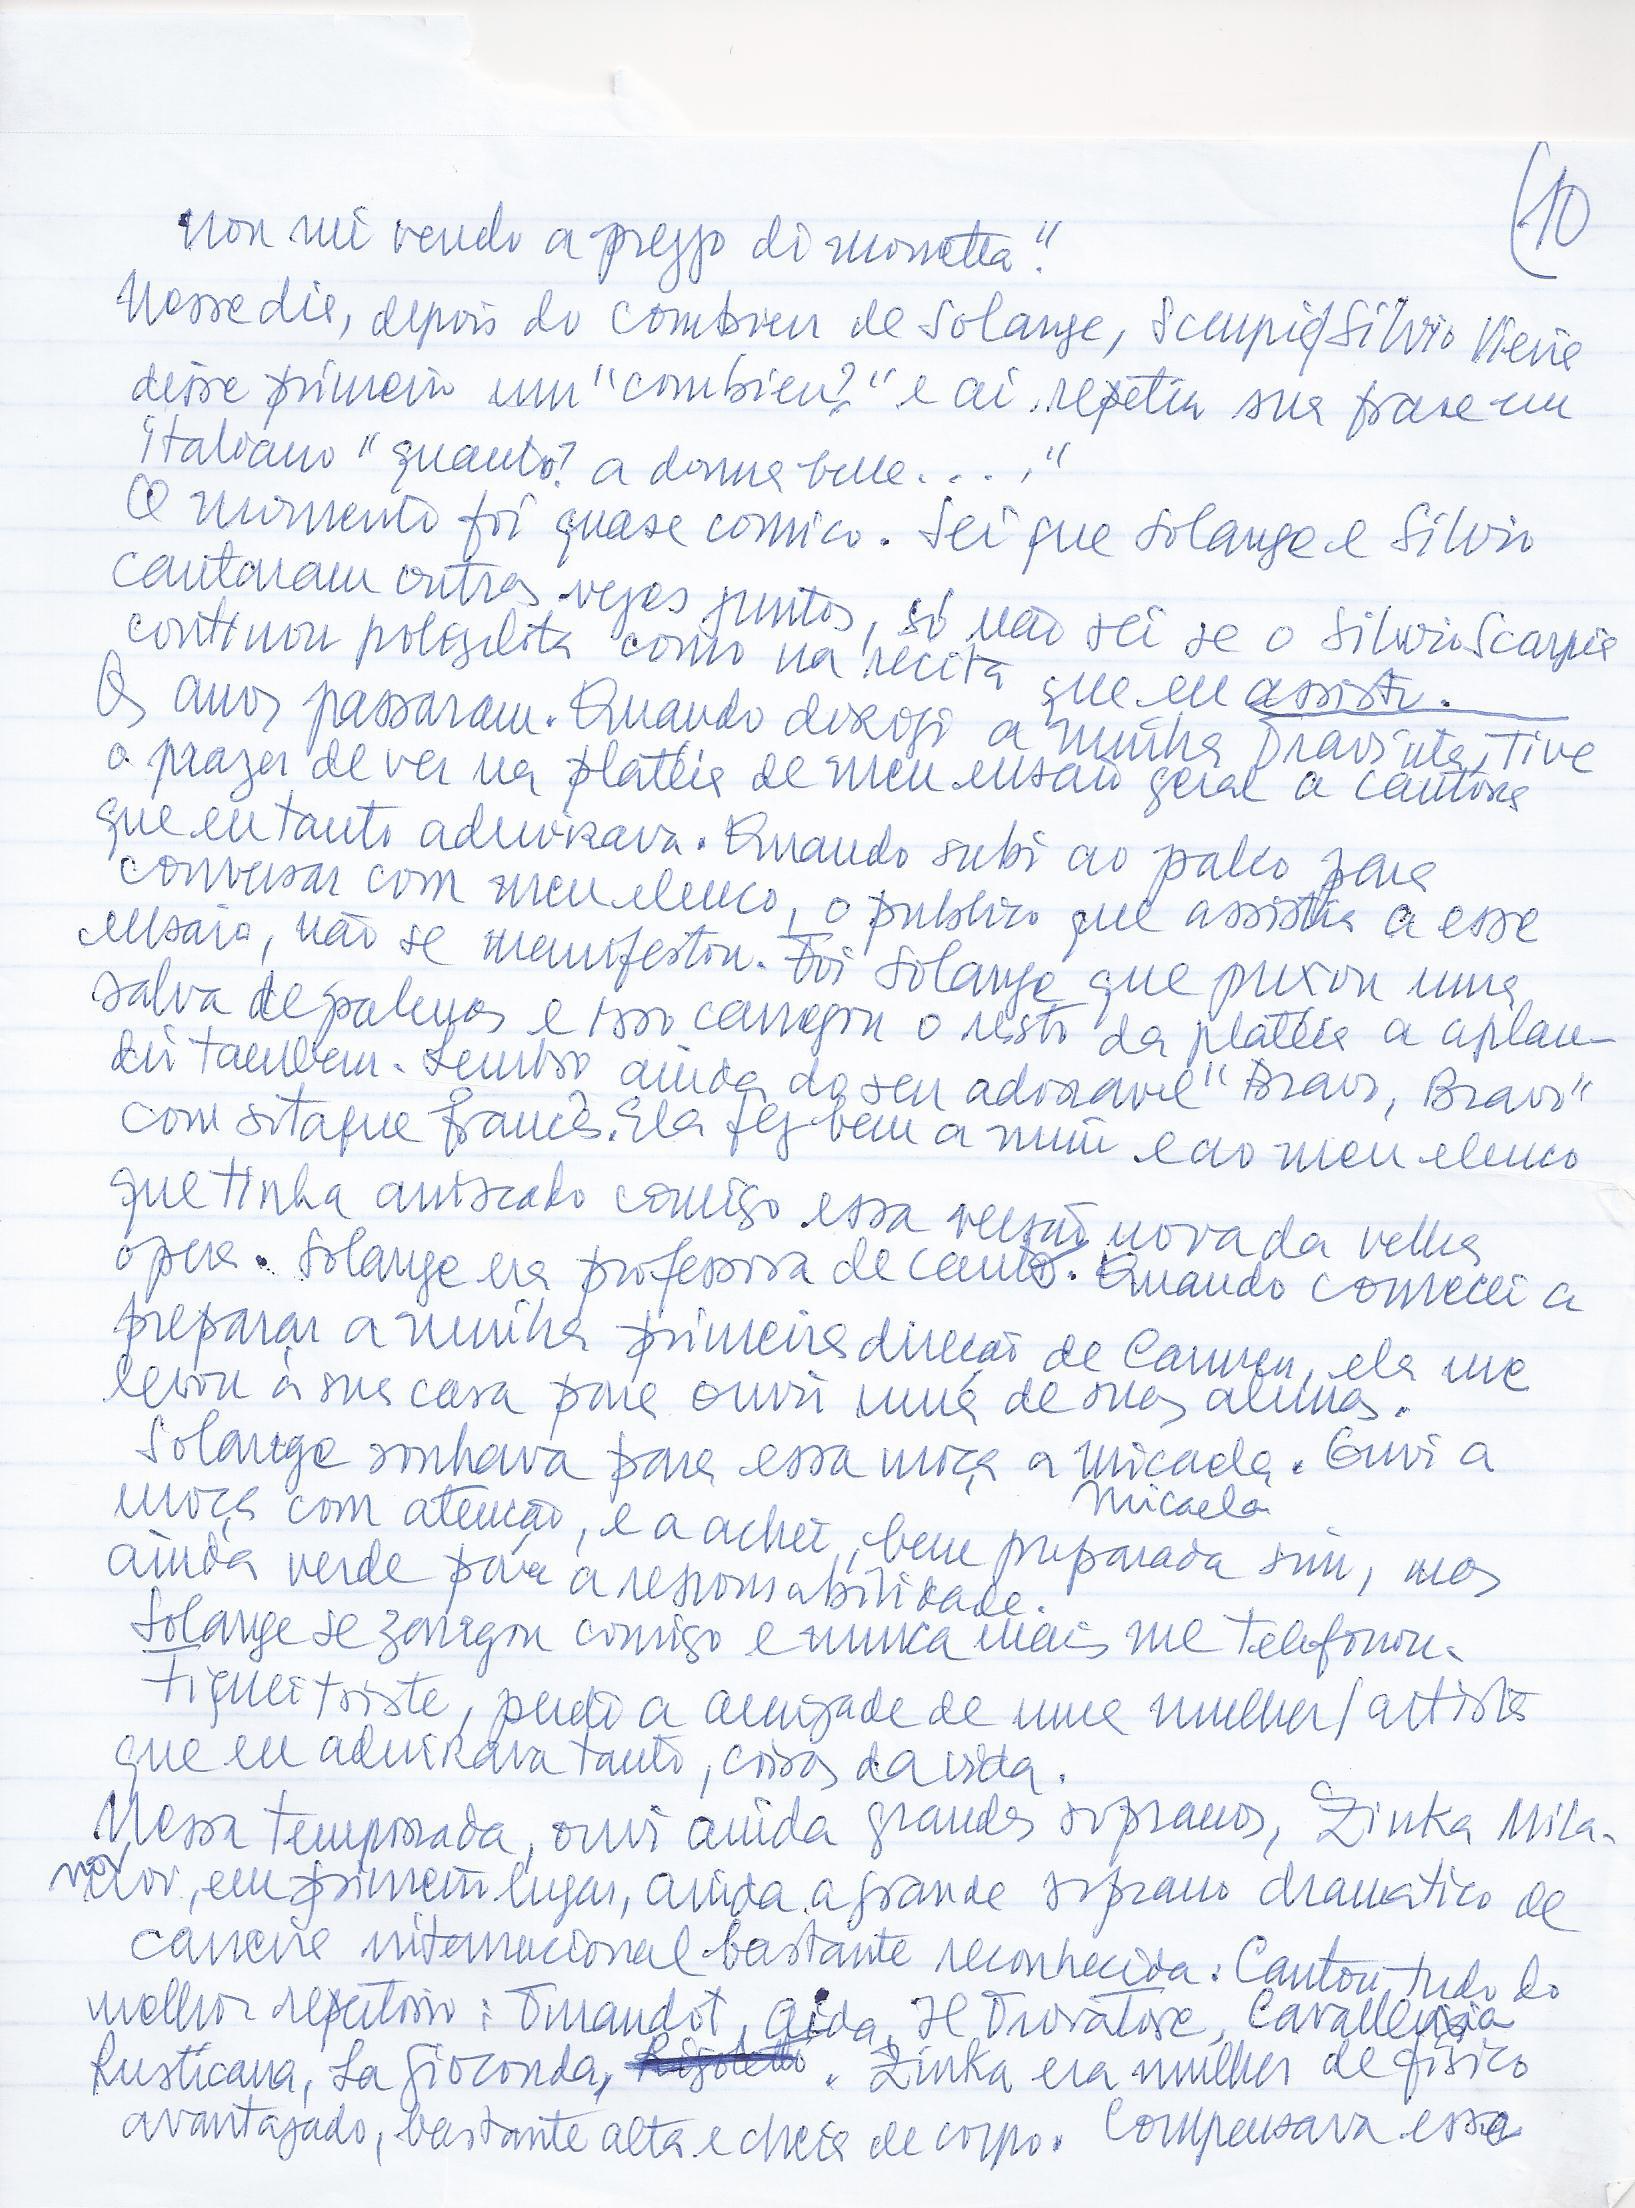 (10
non mi vendo a prezzo di monetta".
Nesse dia, depois do combien de Solange, Scarpia/Silvio Vieira
disse primeiro um "combien?" e ai repetiu sua frase em
italiano "quanto? a donna bella....."
O momento foi quase comico. Sei que Solange e Silvio
cantaram outras vezes juntos, só não sei se o Silvio Scarpia
continou poliglota como na récita que eu assisti.
Os anos passaram. Quando dirigi a minha Traviata, tive
o prazer de ver na platéia de meu ensaio geral a cantora
que eu tanto admirava. Quando subi ao palco para
conversar com meu elenco, o publico que assistia a esse
ensaio, não se manifestou. Foi Solange que puxou uma
salva de palmas e isso carregou o resto da platéia a aplau-
dir tambem. Lembro ainda do seu adoravel "Bravo, Bravo"
com sotaque francês. Ela fez bem a mim e ao meu elenco
que tinha arriscado comigo essa versão nova da velha
opera. Solange era professora de canto. Quando comecei a
preparar a minha primeira direção de Carmen, ela me
levou à sua casa para ouvir uma de suas alunas.
Solange sonhava para essa moça a Micaela. Ouvi a
Micaela
moça com atenção, e a achei, bem preparada sim, mas
ainda verde para a responsabilidade.
Solange se zangou comigo e nunca mais me telefonou.
Fiquei triste, perdi a amizade de uma mulher/artista
que eu admirava tanto, coisas da vida.
Nessa temporada, ouvi ainda grandes sopranos, Zinka Mila-
nov, em primeiro lugar, ainda a grande soprano dramatico de
carreira internacional bastante reconhecida. Cantou tudo do
melhor repertorio: Turandot, Aida, Il Trovatore, Cavalleria
Rusticana, La Gioconda, Rigoletto. Zinka era mulher de fisico
avantajado, bastante alta e cheia de corpo. Compensava essa